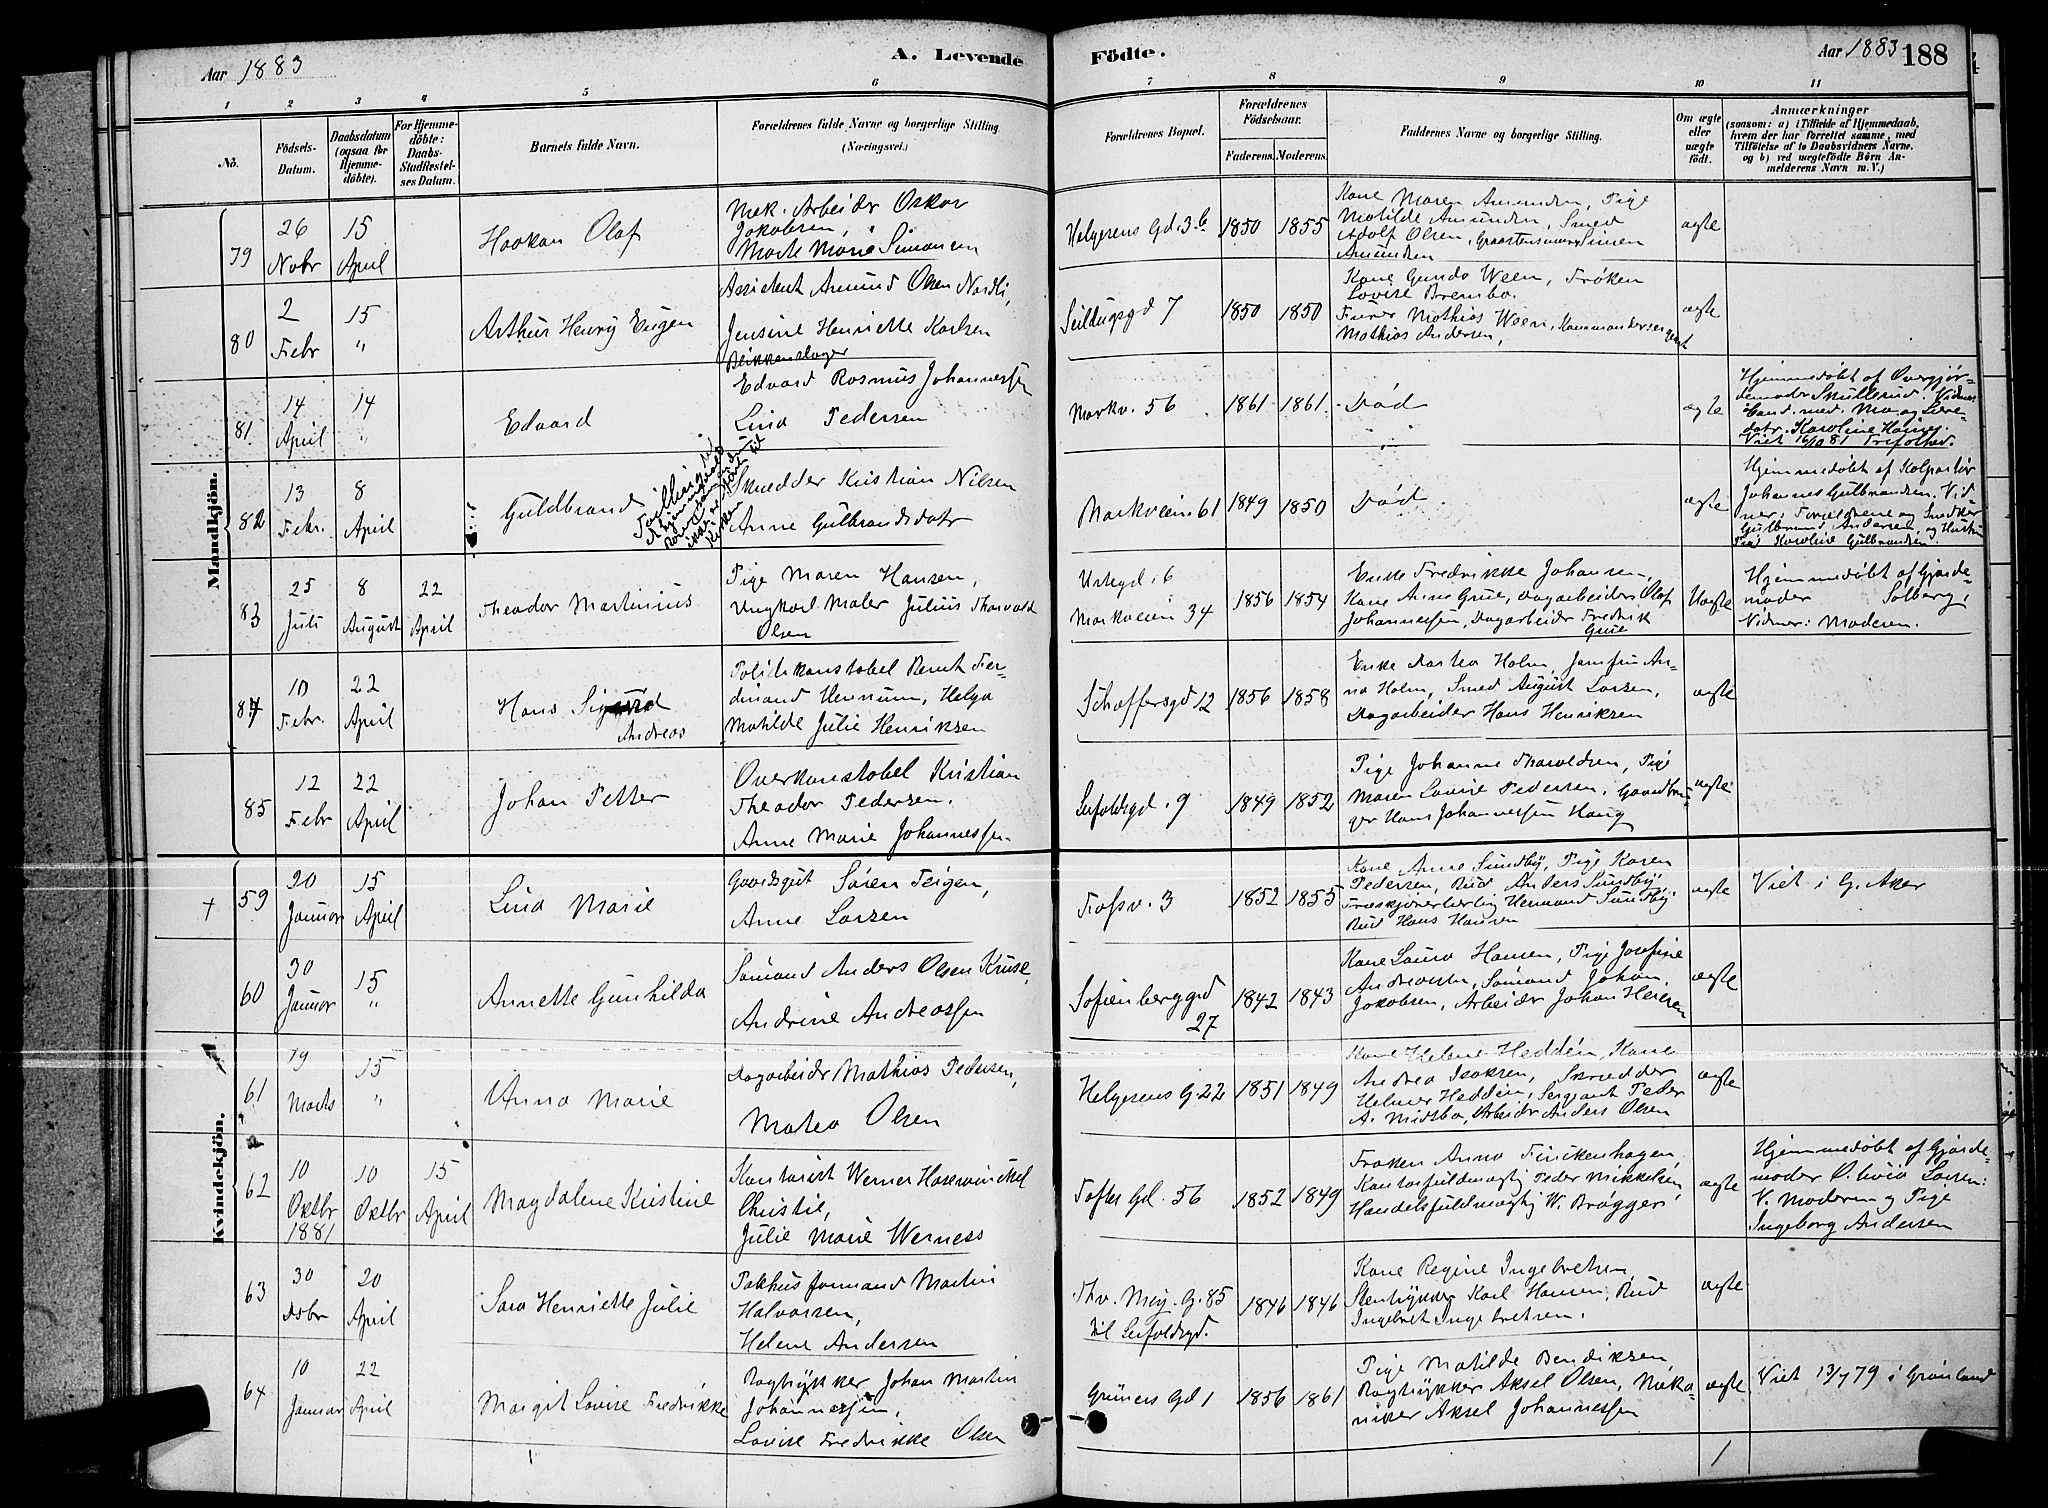 Aar 1883
A. Levende
Födte.
Aar 1883
188
1 2 3 4 5 6 7 8 9 10 11
No.
Födsels-
Datum.
Daabsdatum
(ogsaa for
Hjemme-
döbte).
For Hjemme-
döbte:
Daabs-
Stadfæstel-
ses Datum.
Barnets fulde Navn.
Forældrenes fulde Navne og borgerlige Stilling.
(Næringsvei.)
Forældrenes Bopæl.
Forældrenes
Födselsaar.
Faderens. Moderens.
Faddernes Navne og borgerlige Stilling.
Om ægte
eller
uægte
født.
Anmærkninger
(saasom: a) i Tilfælde af Hjemmedaab,
hvem der har forrettet samme, med
Tilföielse af to Daabsvidners Navne.
og b) ved uægtefödte Börn An-
melderens Navn m. V.)
Mandkjön.
79
26
Nobr
15
April
Haakon Olaf
Mek. Arbeider Oskar
Jakobsen,
Marte Marie Simonsen
Helgesens Gd. 3b
1850
1855
Kone Maren Amundsen, Pige
Matilde Amundsen, Smed
Adolf Olsen, Simen
Amundsen
ægte
80
2
Febr
15
"
Arthur Henry Eugen
Assistent Amund Olsen Nordli,
Jensine Henriette Karlsen
Seildugsgd 7
1850
1850
Kone Gunda Ween, Frøken
Lovise Brembo.
Furer Mathias Ween, Kommandersergeant
Mathias Andersen,
ægte
81
14
April
14
"
Edvard
Blikkenslager
Edvard Rasmus Johannessen
Lina Pedersen
Markv. 56
1861
1861
Død
ægte
Hjemmedøbt af Overgjør-
demoder Skullerud. Vidner
Cand. med. Moe og Lære-
datr. Karoline Hansen.
Viet 16/10 81 Trefoldhed.
82
13
Febr.
8
April
Guldbrand
Skrædder Kristian Nilsen
Anne Gulbrandsdatr
Markveien 61
1849
1850
Død
ægte
Hjemmedøbt af Kolportør
Johannes Gulbrandsen. Vid
ner: Forældrene og Snedker
Gulbrand Andersen og Hustru
Pige Karoline Gulbrandsen
83
25
Juli
8
August
22
April
Theodor Martinius
Pige Maren Hansen,
Ungkarl Maler Julius Thorvald
Olsen
Urtegd. 6
Markveien 34
1856
1854
Enke Fredrikke Johansen,
Kone Anne Grue, Dagarbeider Olaf
Johannessen, Dagarbeider Fredrik
Grue
Uægte
Hjemmedøbt af Gjorde-
moder Solberg,
Vidner: Moderen.
84
10
Febr.
22
April
Hans Sigurd
Andreas
Politikonstabel Bernt Fer-
dinand Hennum, Helga
Matilde Julie Henriksen
Schaffersgd 12
1856
1858
Enke Dortea Holm, Jomfru An-
na Holm, Smed August Larsen,
Dagarbeider Hans Henriksen
ægte
85
12
Febr
22
April
Johan Petter
Overkonstabel Kristian
Theodor Pedersen,
Anne Marie Johannessen
Leifoldsgd. 9
1849
1852
Pige Johanne Tharoldsen, Pige
Maren Lovise Pedersen, Gaardbru-
ger Hans Johannessen Haug
ægte
Kvindekjön.
+
59
20
Januar
15
April
Lina Marie
Gaardsgut Søren Teigen,
Anne Larsen
Fossv. 3
1852
1855
Kone Anne Sundby, Pige Karen
Pedersen, Bud Anders Sundby,
Herman Sundby.
Bud Hans Hansen
ægte
Viet i G. Aker
60
30
Januar
15
"
Annette Gunhilda
Sømand Anders Olsen Kruse,
Andrine Andreassen
Sofienberggd
27
1842
1843
Kone Laura Hansen, Pige Josefine
Andreassen, Sømand Johan
Jakobsen, Arbeider Johan Heiren
ægte
61
19
Marts
15
"
Anna Marie
Dagarbeider Mathias Pedersen,
Matea Olsen
Helgesens G. 22
1851
1849
Kone Helene Heddén, Kone
Andrea Isaksen, Skrædder
Helmer Heddén, Sergeant Peder
A. Midtbø, Arbeidr Anders Olsen
ægte
62
10
Oktbr
1881
10
Oktbr
15
April
Magdalene Kristine
Kontorist Werner Hasewinckel
Christie,
Julie Marie Werness
Toftes Gd. 56
1852
1849
Frøken Anna Finckenhagen
Kontorfuldmægtig Peder Mikkelsen,
Handelsfuldmægtig W. Brøgger
ægte
Hjemmedøbt af Gjorde-
moder Olivia Larsen:
V. Moderen og Pige
Ingeborg Andersen
63
30
Dsbr
20
April
Sara Henriette Julie
Pakhusformand Martin
Halvorsen,
Helene Andersen
Thv. Mey. G. 85
til Leifoldsgd.
1846
1846
Kone Regine Ingebretsen
Stentrykker Karl Hansen, Bud
Ingebret Ingebretsen.
ægte
64
10
Januar
22
April
Margit Lovise Fredrikke
Bogtrykker Johan Martin
Johannessen,
Lovise Fredrikke Olsen
Grüners Gd 1
1856
1861
Pige Matilde Bendiksen,
Bogtrykker Aksel Olsen, Meka-
niker Aksel Johannessen
ægte
Viet 13/7 79 i Grønland